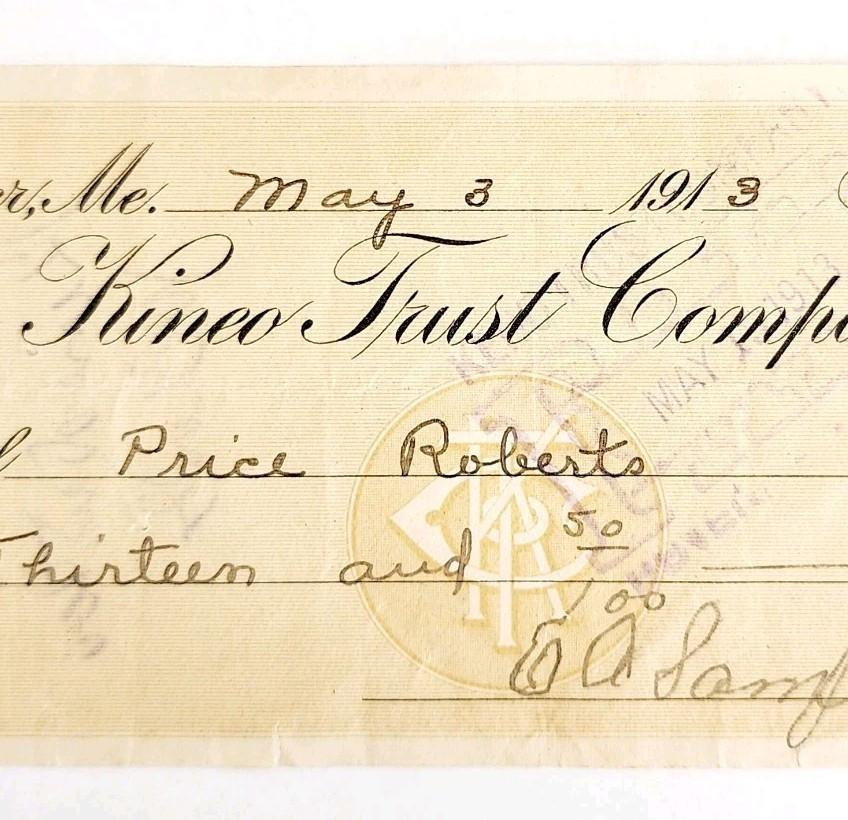 er, Me. May 3 1913
Kineo Trust Compa
Price Roberts
Thirteen and 50/100
E A Samf
MAY 1913
KTC